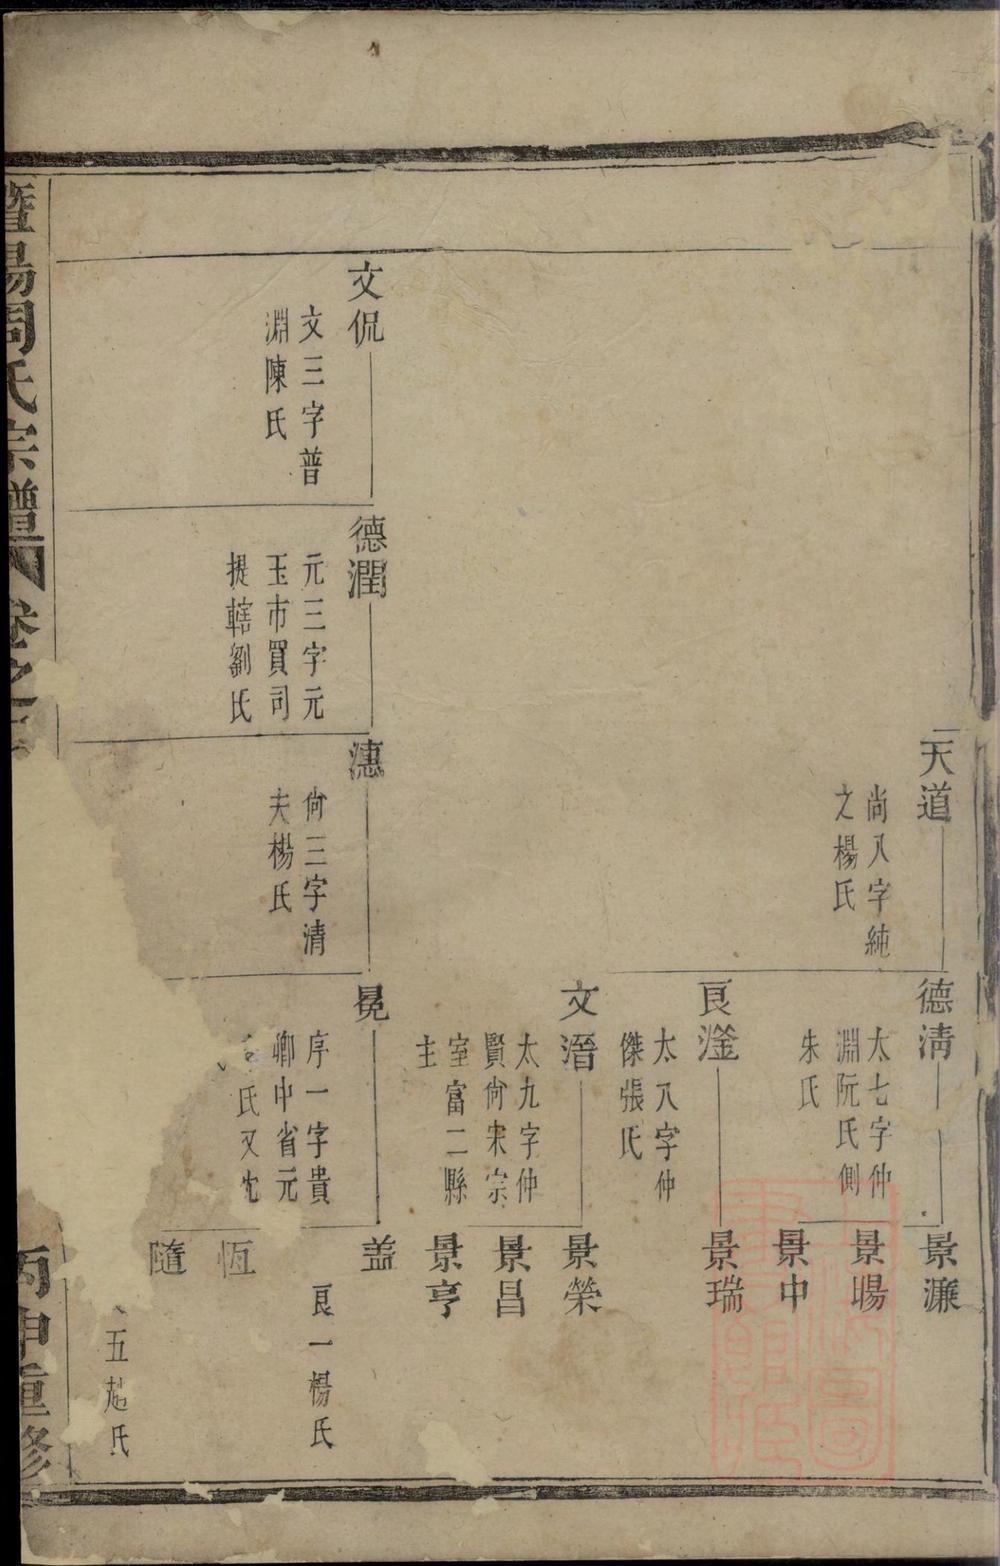 天道
尚八字純
之楊氏
德淸
太七字仲
淵阮氏側
朱氏
景濂
景暘
景中
良滏
太八字仲
傑張氏
景瑞
文溍
太九字仲
賢尙宋宗
室富二縣
主
景榮
景昌
景亨
文侃
文三字普
淵陳氏
德潤
元三字元
玉市買司
提轄劉氏
潓
尙三字清
夫楊氏
冕
序一字貴
卿中省元
氏又
盖
良一楊氏
恆
隨
五趙氏
暨陽周氏宗譜
卷之
丙申重修